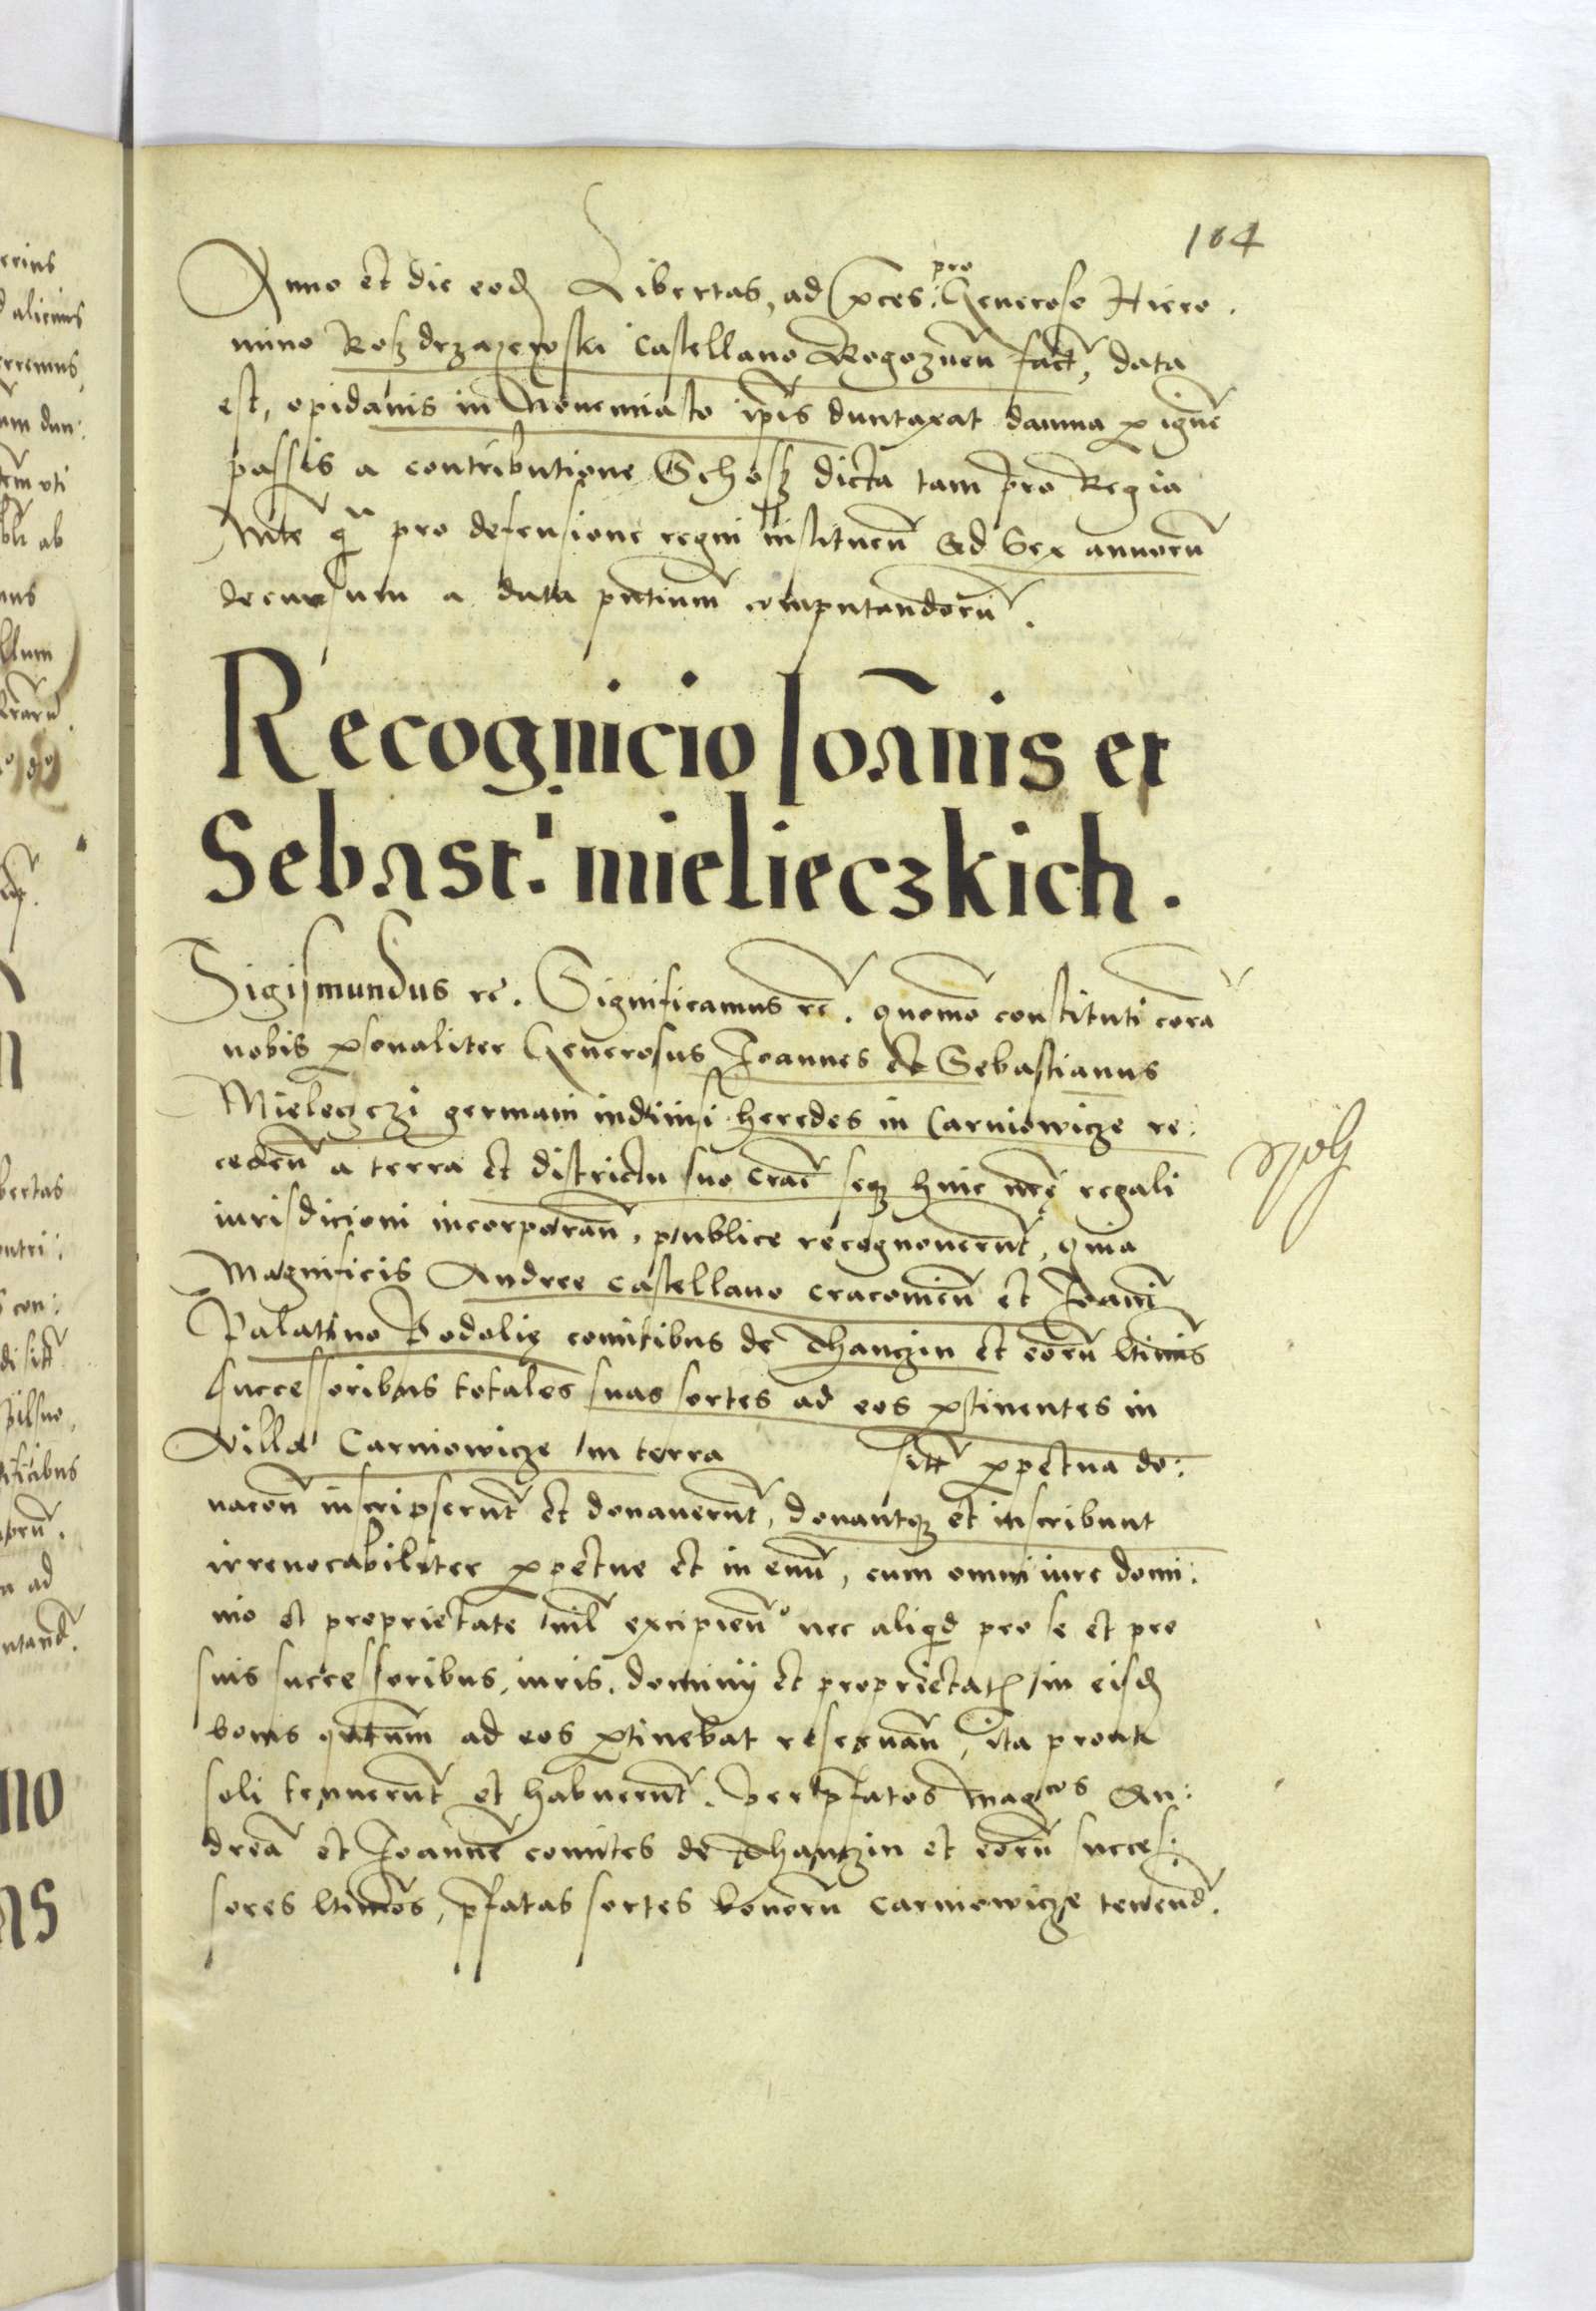 104
Anno et die eod Libertas, ad pces: pro Generoso Hiero.
nimo Roszdrzazewski Castellano Rogoznen fact, data
est, opidanis in Novemiasto ipis duntaxat damna p igne
passis a contributione Schosz dicta tam pro Regia
Mte q pro defensione regni instituen Ad Sex annoru
decursum a data pntium computandoru.
Recognicio Ioannis et
Sebast: mielieczkich.
Sigismundus rc. Significamus rc. quomo constituti cora
nobis psonaliter Generosus Joannes et Sebastianus
Mieleczczi germani indivisi heredes in Carniowicze re:
ceden a terra et districtu suo Crac seq huic nre regali
iurisdicioni incorporan, publice recognoverunt, quia
Magnificis Andree castellano cracovien et Joani
Palatino Podolie comitibus de Thanczin et eoru ltimis
successoribus totales suas sortes ad eos ptinentes in
Villa Carniowicze in terra sitt ppetua do:
nacon inscripserunt et donaverunt, donantq et inscribunt
irrevocabiliter ppetue et in evu, cum omni iure domi:
nio et proprietate nil excipien nec aliqd pro se et pro
suis successoribus, iuris, dominij et proprietat in eisd
bonis qutum ad eos ptinebat reservan, ita prout
soli tenuerunt et habuerunt. per pfatos magcos An:
drea et Joanne comites de Thanczin et eoru succes:
sores ltimos, pfatas sortes bonoru Carniowicze tenend.